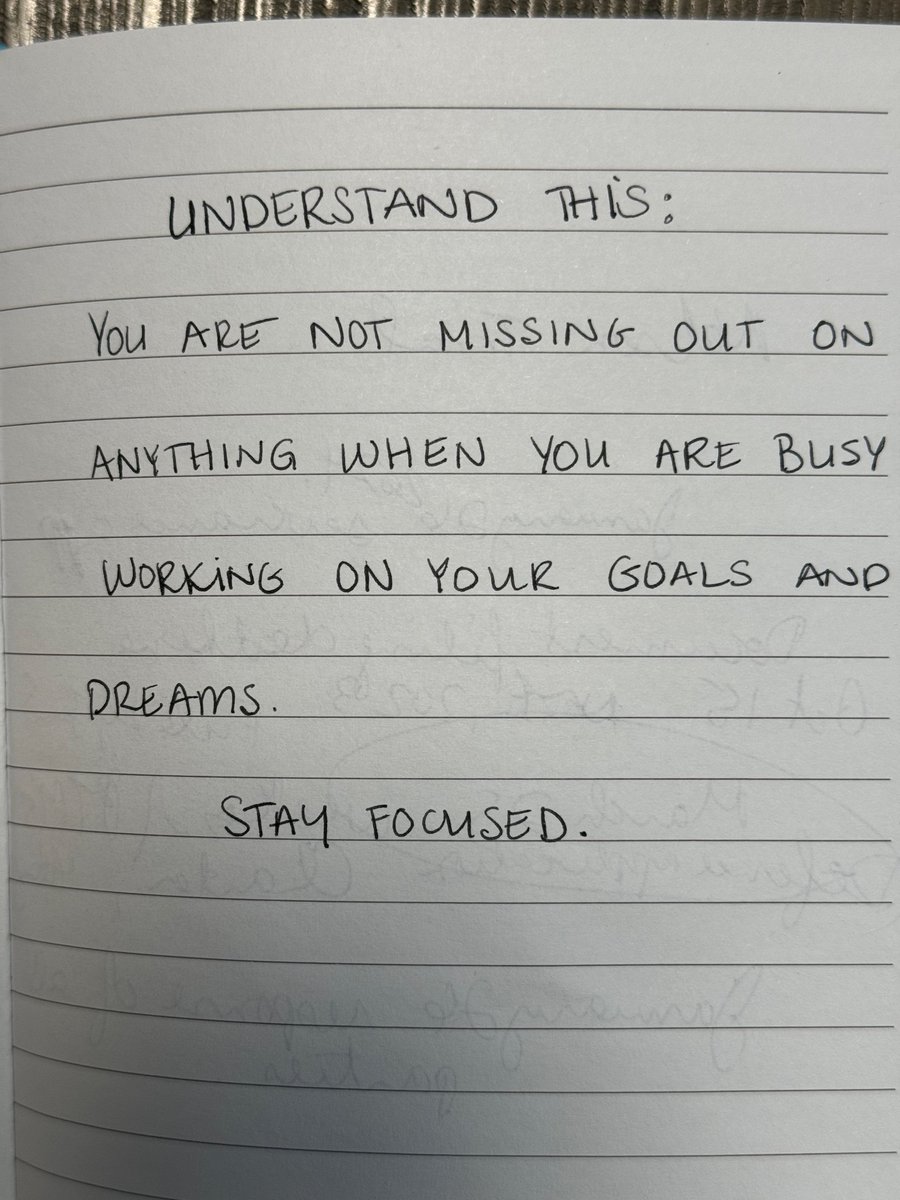 UNDERSTAND THIS:
YOU ARE NOT MISSING OUT ON
ANYTHING WHEN YOU ARE BUSY
WORKING ON YOUR GOALS AND
DREAMS.
STAY FOCUSED.